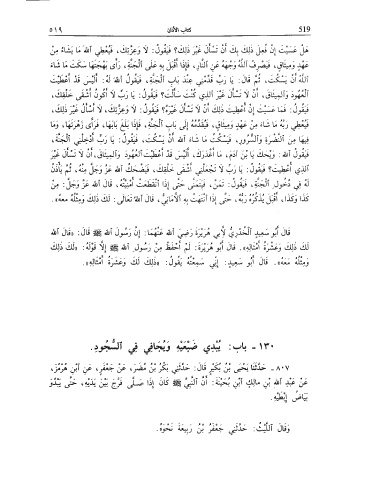 519 كتاب الأذان ٥١٩
هَلْ عَسَيْتَ إِنْ فُعِلَ ذَلِكَ بِكَ أَنْ تَسْأَلَ غَيْرَ ذَلِكَ؟ فَيَقُولُ: لَا وَعِزَّتِكَ، فَيُعْطِي اللهَ مَا يَشَاءُ مِنْ
عَهْدٍ وَمِيثَاقٍ، فَيَصْرِفُ اللهُ وَجْهَهُ عَنِ النَّارِ، فَإِذَا أَقْبَلَ بِهِ عَلَى الْجَنَّةِ، رَأَى بَهْجَتَهَا سَكَتَ مَا شَاءَ
اللهُ أَنْ يَسْكُتَ، ثُمَّ قَالَ: يَا رَبِّ قَدِّمْنِي عِنْدَ بَابِ الْجَنَّةِ، فَيَقُولُ اللهُ لَهُ: أَلَيْسَ قَدْ أَعْطَيْتَ
الْعُهُودَ وَالْمِيثَاقَ، أَنْ لَا تَسْأَلَ غَيْرَ الَّذِي كُنْتَ سَأَلْتَ؟ فَيَقُولُ: يَا رَبِّ لَا أَكُونُ أَشْقَى خَلْقِكَ،
فَيَقُولُ: فَمَا عَسَيْتَ إِنْ أُعْطِيتَ ذَلِكَ أَنْ لَا تَسْأَلَ غَيْرَهُ؟ فَيَقُولُ: لَا وَعِزَّتِكَ، لَا أَسْأَلُ غَيْرَ ذَلِكَ،
فَيُعْطِي رَبَّهُ مَا شَاءَ مِنْ عَهْدٍ وَمِيثَاقٍ، فَيُقَدِّمُهُ إِلَى بَابِ الْجَنَّةِ، فَإِذَا بَلَغَ بَابَهَا، فَرَأَى زَهْرَتَهَا، وَمَا
فِيهَا مِنَ النَّضْرَةِ وَالسُّرُورِ، فَيَسْكُتُ مَا شَاءَ اللهُ أَنْ يَسْكُتَ، فَيَقُولُ: يَا رَبِّ أَدْخِلْنِي الْجَنَّةَ،
فَيَقُولُ اللهُ: وَيْحَكَ يَا بْنَ آدَمَ، مَا أَغْدَرَكَ، أَلَيْسَ قَدْ أَعْطَيْتَ الْعُهُودَ وَالْمِيثَاقَ، أَنْ لَا تَسْأَلَ غَيْرَ
الَّذِي أُعْطِيتَ؟ فَيَقُولُ: يَا رَبِّ لَا تَجْعَلْنِي أَشْقَى خَلْقِكَ، فَيَضْحَكُ اللهُ عَزَّ وَجَلَّ مِنْهُ، ثُمَّ يَأْذَنُ
لَهُ فِي دُخُولِ الْجَنَّةِ، فَيَقُولُ: تَمَنَّ، فَيَتَمَنَّى حَتَّى إِذَا انْقَطَعَتْ أُمْنِيَّتُهُ، قَالَ اللهُ عَزَّ وَجَلَّ: مِنْ
كَذَا وَكَذَا، أَقْبَلَ يُذَكِّرُهُ رَبُّهُ، حَتَّى إِذَا انْتَهَتْ بِهِ الْأَمَانِيُّ، قَالَ اللهُ تَعَالَى: لَكَ ذَلِكَ وَمِثْلُهُ مَعَهُ».
قَالَ أَبُو سَعِيدٍ الْخُدْرِيُّ لِأَبِي هُرَيْرَةَ رَضِيَ اللهُ عَنْهُمَا: إِنَّ رَسُولَ اللهِ ﷺ قَالَ: «قَالَ اللهُ
لَكَ ذَلِكَ وَعَشَرَةُ أَمْثَالِهِ». قَالَ أَبُو هُرَيْرَةَ: لَمْ أَحْفَظْ مِنْ رَسُولِ اللهِ ﷺ إِلَّا قَوْلَهُ: «لَكَ ذَلِكَ
وَمِثْلُهُ مَعَهُ». قَالَ أَبُو سَعِيدٍ: إِنِّي سَمِعْتُهُ يَقُولُ: «ذَلِكَ لَكَ وَعَشَرَةُ أَمْثَالِهِ».
١٣٠ - باب: يُبْدِي ضَبْعَيْهِ وَيُجَافِي فِي السُّجُودِ.
٨٠٧ - حَدَّثَنَا يَحْيَى بْنُ بُكَيْرٍ قَالَ: حَدَّثَنِي بَكْرُ بْنُ مُضَرَ، عَنْ جَعْفَرٍ، عَنِ ابْنِ هُرْمُزَ،
عَنْ عَبْدِ اللهِ بْنِ مَالِكٍ ابْنِ بُحَيْنَةَ: أَنَّ النَّبِيَّ ﷺ كَانَ إِذَا صَلَّى فَرَّجَ بَيْنَ يَدَيْهِ، حَتَّى يَبْدُوَ
بَيَاضُ إِبْطَيْهِ.
وَقَالَ اللَّيْثُ: حَدَّثَنِي جَعْفَرُ بْنُ رَبِيعَةَ نَحْوَهُ.